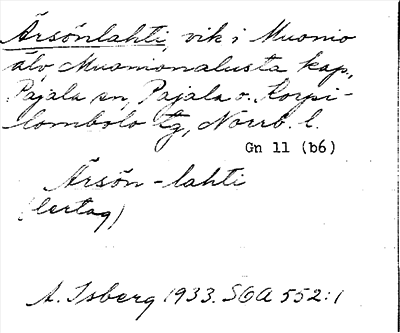 Ärsönlahti, vik i Muonio
älv, Muonionalusta kap.,
Pajala sn, Pajala o. Korpi-
lombolo tg, Norrb. l.
Gn 11 (b6)
Ärsön-lahti
(lertag)
A. Isberg 1933. SOA 552:1